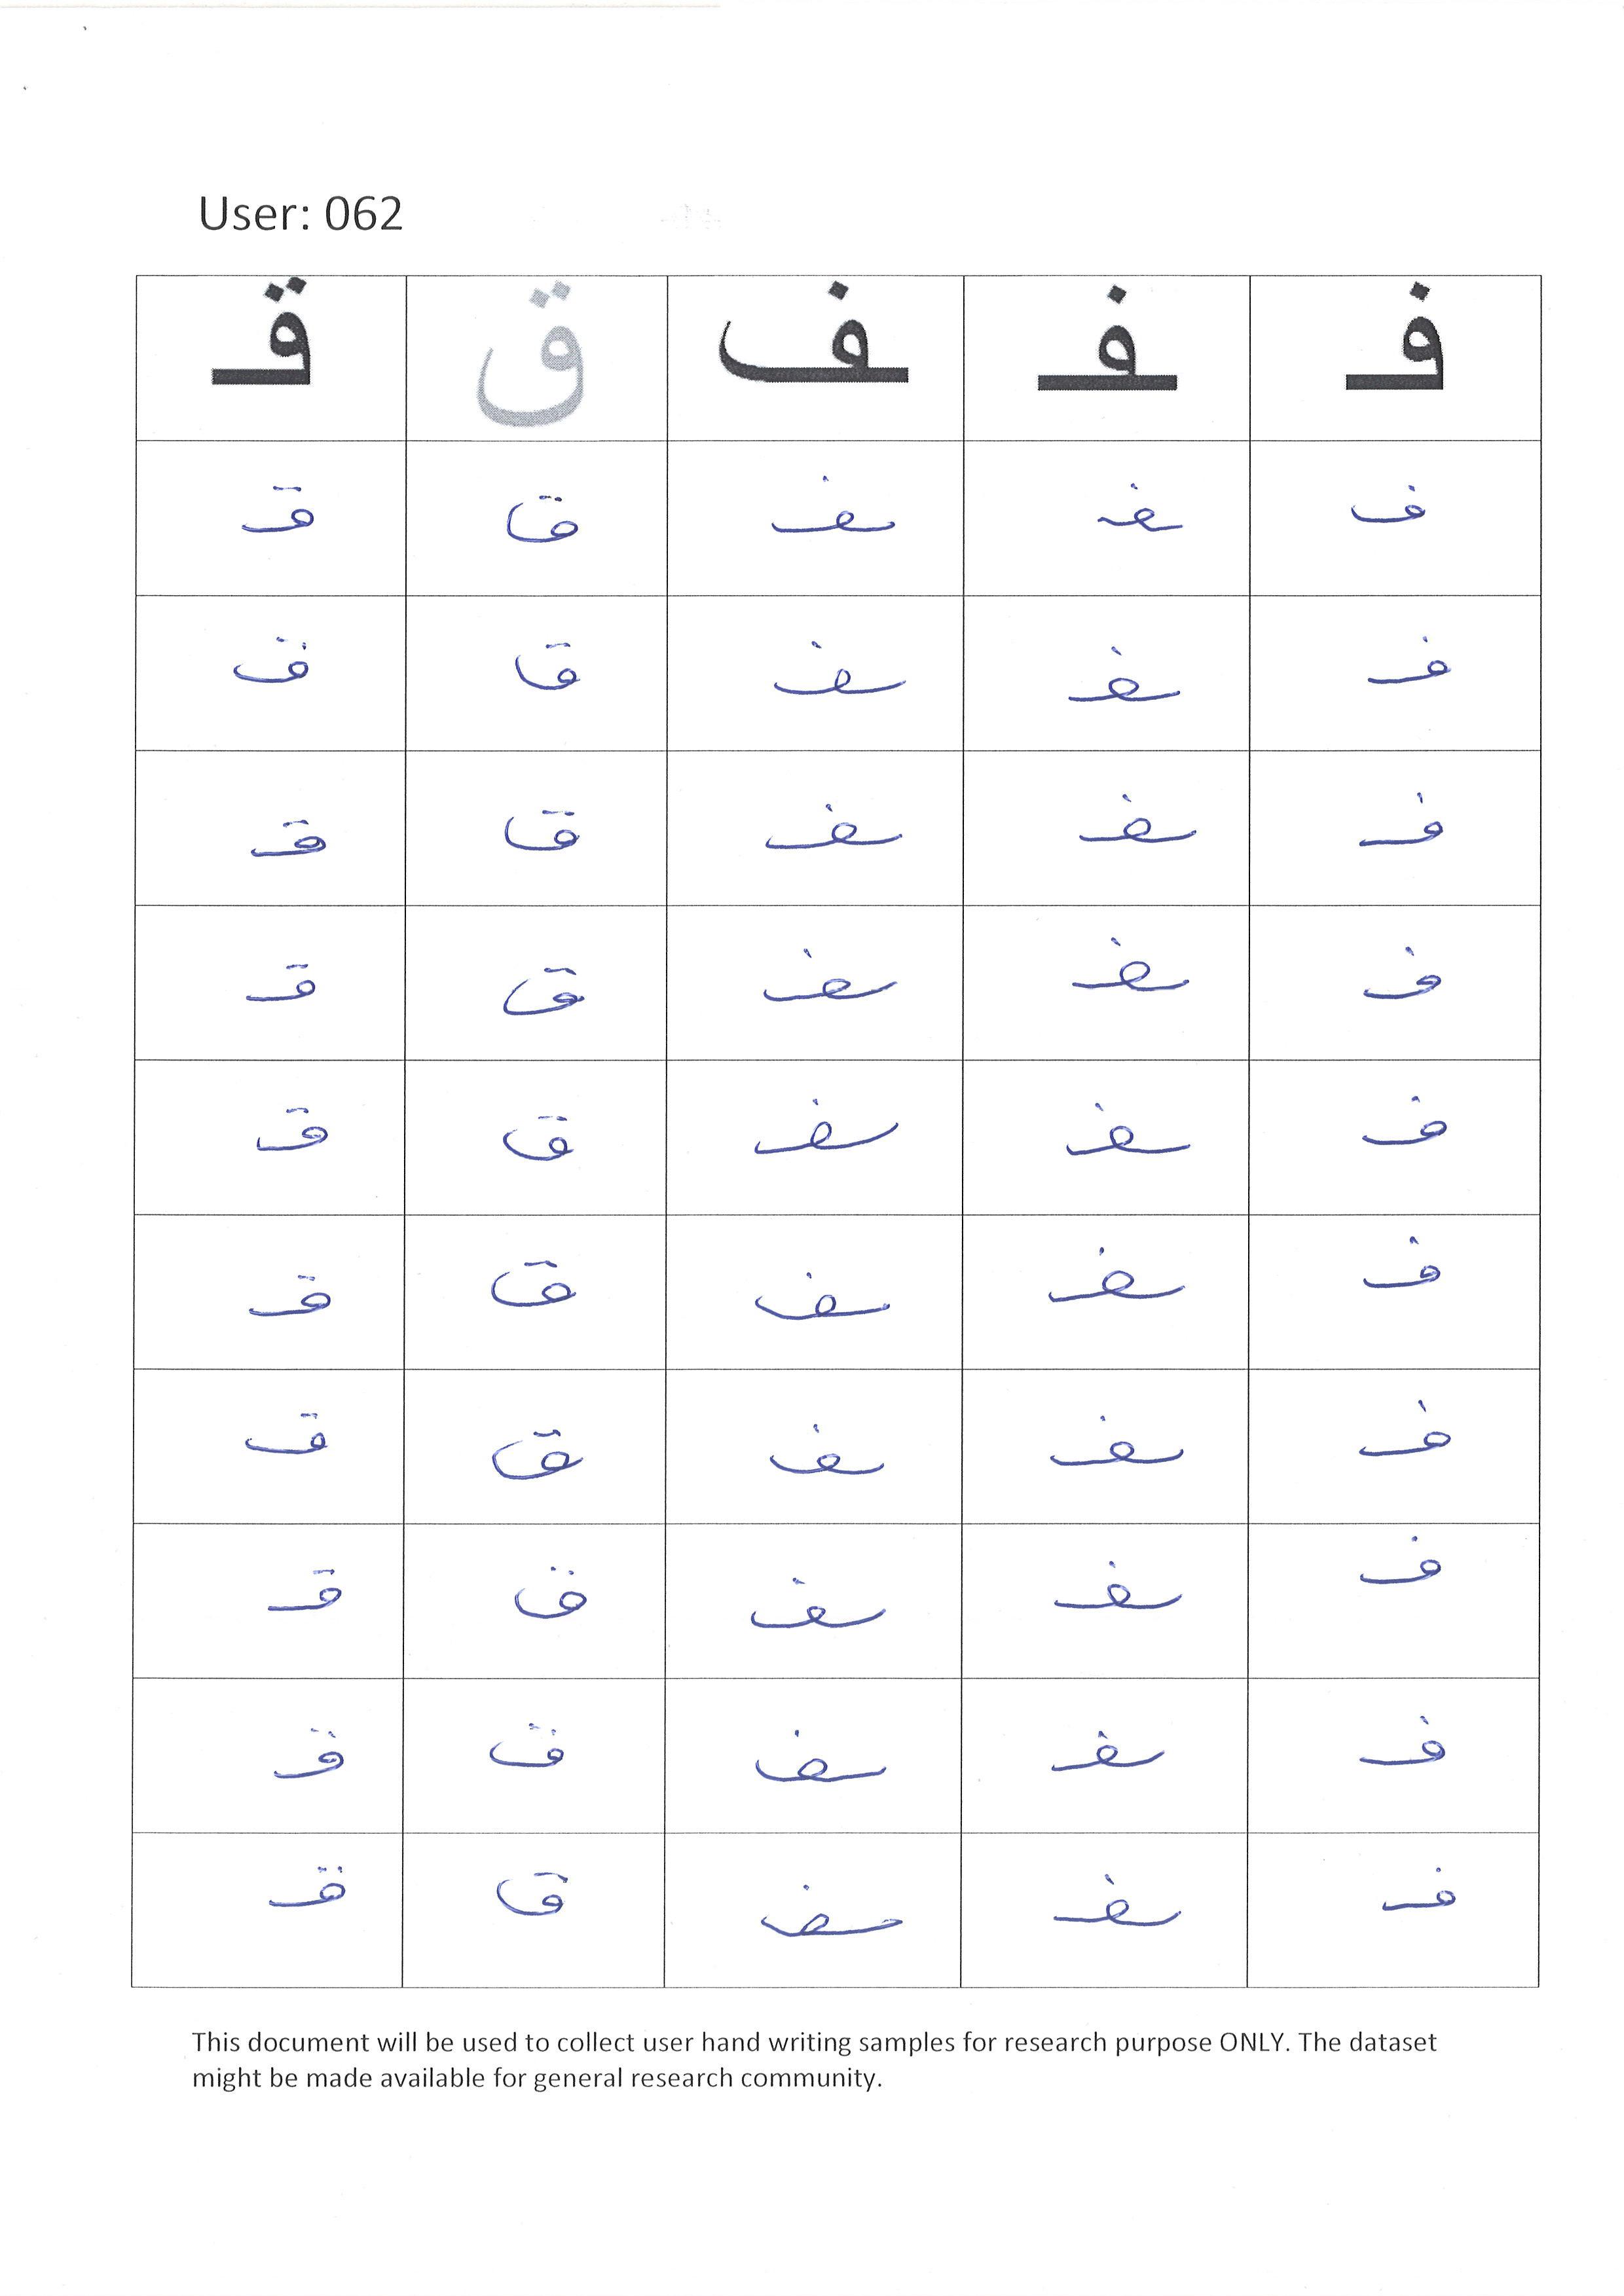 User: 062
فـ ـفـ ـف ق قـ
فـ ـفـ ـف ق قـ
فـ ـفـ ـف ق قـ
فـ ـفـ ـف ق قـ
فـ ـفـ ـف ق قـ
فـ ـفـ ـف ق قـ
فـ ـفـ ـف ق قـ
فـ ـفـ ـف ق قـ
فـ ـفـ ـف ق قـ
فـ ـفـ ـف ق قـ
فـ ـفـ ـف ق قـ
This document will be used to collect user hand writing samples for research purpose ONLY. The dataset
might be made available for general research community.